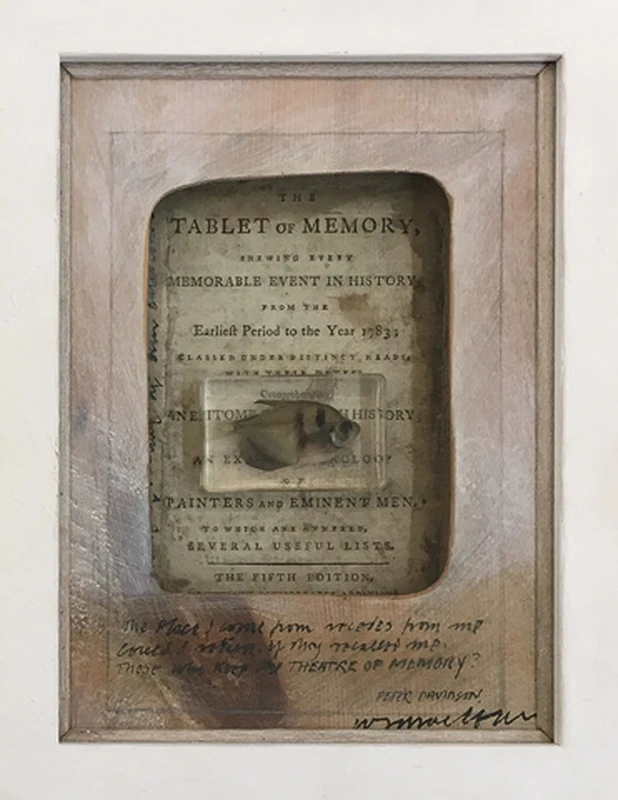 THE
TABLET OF MEMORY,
SHEWING EVERY
MEMORABLE EVENT IN HISTORY
FROM THE
Earlieſt Period to the Year 1783;
CLASSED UNDER DISTINCT HEADS,
WITH THEIR DATES
Comprehending
AN EPITOME HISTORY,
AN
OF
PAINTERS AND EMINENT MEN.
TO WHICH ARE ANNEXED,
SEVERAL USEFUL LISTS.
THE FIFTH EDITION,
The Place I come from recedes from me
Could I return. If they recalled me.
Those who keep the THEATRE OF MEMORY?
PETER DAVIDSON